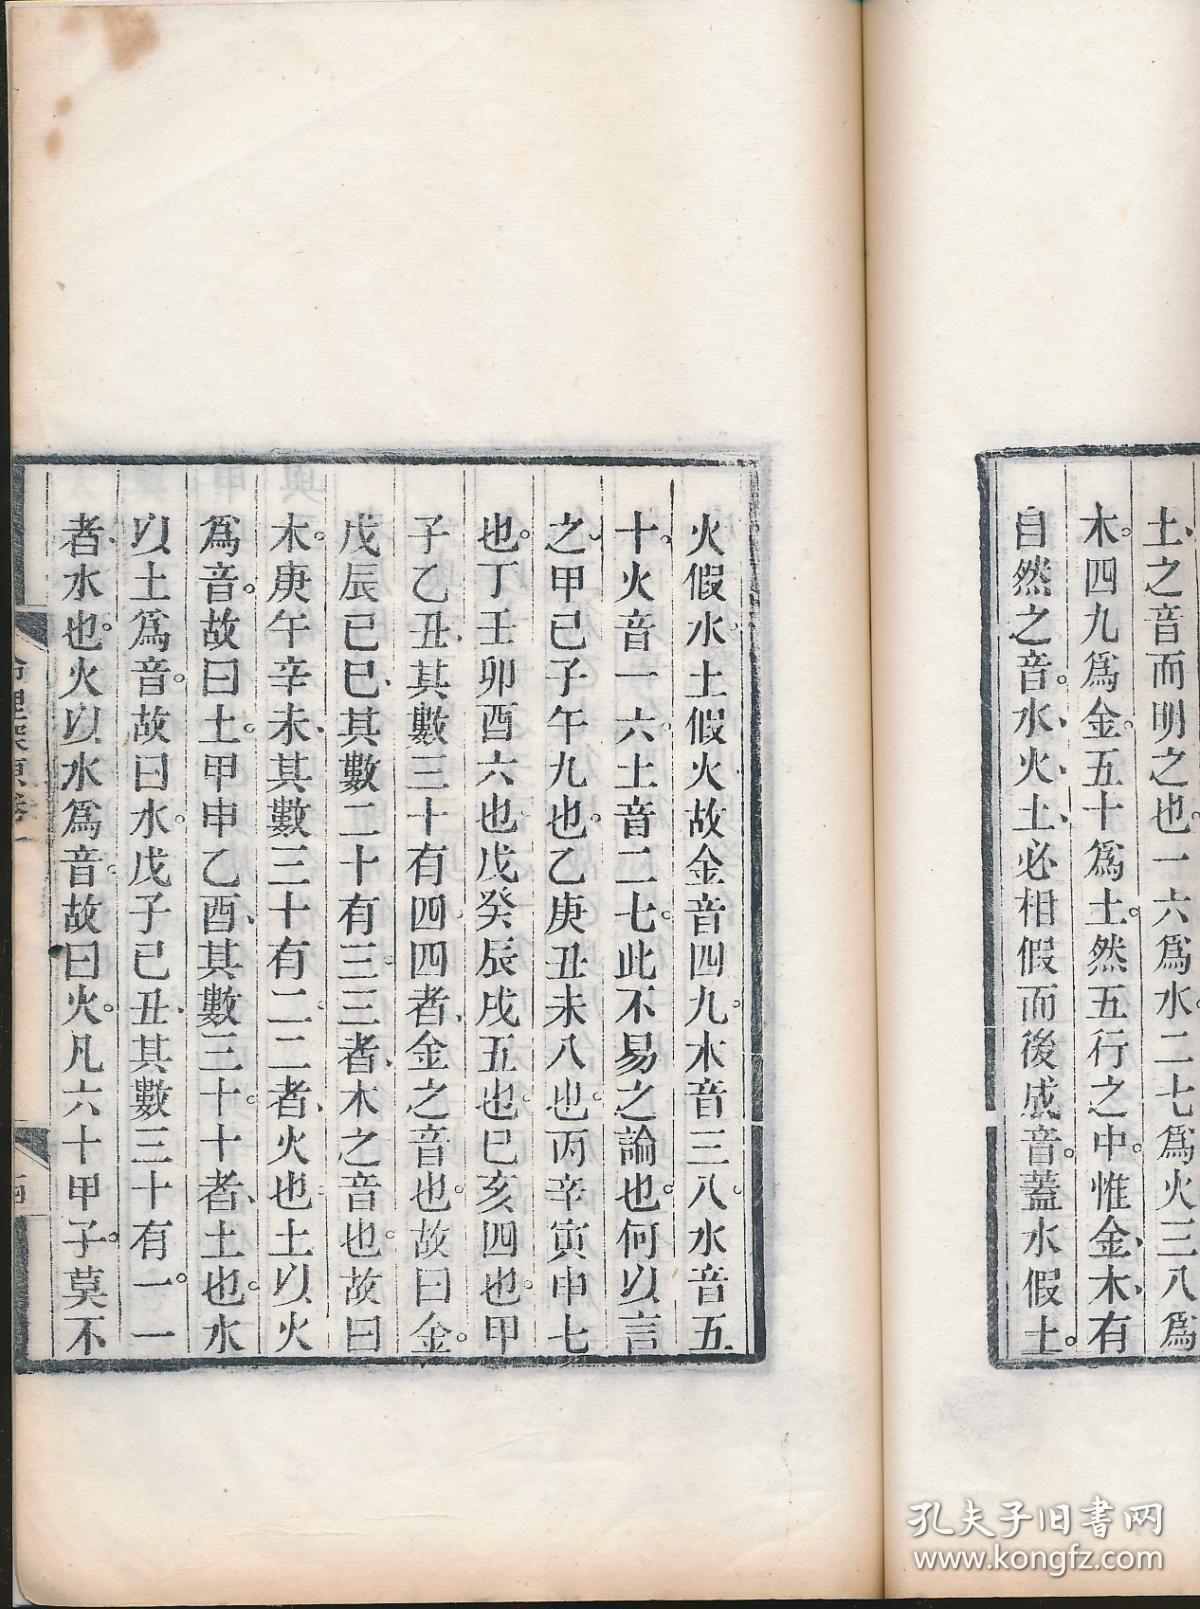 土之音而明之也一六爲水二七爲火三八爲
木四九爲金五十爲土然五行之中惟金木有
自然之音水火土必相假而後成音蓋水假土
火假水土假火故金音四九木音三八水音五
十火音一六土音二七此不易之論也何以言
之甲己子午九也乙庚丑未八也丙辛寅申七
也丁壬卯酉六也戊癸辰戌五也巳亥四也甲
子乙丑其數三十有四四者金之音也故曰金
戊辰己巳其數二十有三三者木之音也故曰
木庚午辛未其數三十有二二者火也土以火
爲音故曰土甲申乙酉其數三十十者土也水
以土爲音故曰水戊子己丑其數三十有一一
者水也火以水爲音故曰火凡六十甲子莫不
命理探原卷一
孔夫子旧书网
www.kongfz.com